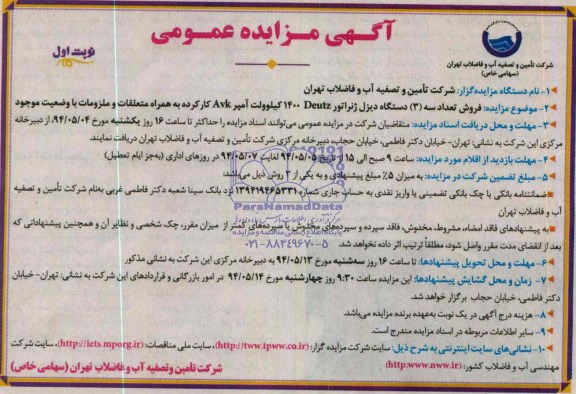 آگهی مزایده عمومی
نوبت اول
شرکت تأمین و تصفیه آب و فاضلاب تهران
(سهامی خاص)
۱- نام دستگاه مزایده‌گزار: شرکت تأمین و تصفیه آب و فاضلاب تهران
۲- موضوع مزایده: فروش تعداد سه (۳) دستگاه دیزل ژنراتور Deutz ۱۴۰۰ کیلوولت آمپر Avk کارکرده به همراه متعلقات و ملزومات با وضعیت موجود
۳- مهلت و محل دریافت اسناد مزایده: متقاضیان شرکت در مزایده عمومی می‌توانند اسناد مزایده را حداکثر تا ساعت ۱۶ روز یکشنبه مورخ ۹۴/۰۵/۰۴، از دبیرخانه
مرکزی این شرکت به نشانی: تهران- خیابان دکتر فاطمی، خیابان حجاب، دبیرخانه مرکزی شرکت تأمین و تصفیه آب و فاضلاب تهران دریافت نمایند.
۴- مهلت بازدید از اقلام مورد مزایده: ساعت ۹ صبح الی ۱۵ از تاریخ ۹۴/۰۵/۰۵ لغایت ۹۴/۰۵/۰۷ در روزهای اداری (به‌جز ایام تعطیل)
۵- مبلغ تضمین شرکت در مزایده: به میزان ۵٪ مبلغ پیشنهادی و به یکی از ۲ روش ذیل می‌باشد:
ضمانتنامه بانکی یا چک بانکی تضمینی یا واریز نقدی به حساب جاری شماره ۱۳۹۴۱۹۴۶۵۳۳۱ نزد بانک سینا شعبه دکتر فاطمی غربی به‌نام شرکت تأمین و تصفیه
آب و فاضلاب تهران
به پیشنهادهای فاقد امضاء، مشروط، مخدوش، فاقد سپرده و سپرده‌های مخدوش یا سپرده‌های کمتر از میزان مقرر، چک شخصی و نظایر آن و همچنین پیشنهاداتی که
بعد از انقضای مدت مقرر واصل شود، مطلقاً ترتیب اثر داده نخواهد شد.
۶- مهلت و محل تحویل پیشنهادها: تا ساعت ۱۶ روز سه‌شنبه مورخ ۹۴/۰۵/۱۳ به دبیرخانه مرکزی این شرکت به نشانی مذکور
۷- زمان و محل گشایش پیشنهادها: این مزایده ساعت ۹:۳۰ روز چهارشنبه مورخ ۹۴/۰۵/۱۴ در امور بازرگانی و قراردادهای این شرکت به نشانی: تهران- خیابان
دکتر فاطمی، خیابان حجاب برگزار خواهد شد.
۸- هزینه درج آگهی در یک نوبت به‌عهده برنده مزایده می‌باشد.
۹- سایر اطلاعات مربوطه در اسناد مزایده مندرج است.
۱۰- نشانی‌های سایت اینترنتی به شرح ذیل: سایت شرکت مزایده گزار: (http://tww.tpww.co.ir)، سایت ملی مناقصات: (http://iets.mporg.ir)، سایت شرکت
مهندسی آب و فاضلاب کشور: (http:www.nww.ir)
شرکت تأمین و تصفیه آب و فاضلاب تهران (سهامی خاص)
ParsNamadData
پایگاه اطلاع رسانی مناقصه و مزایده
۰۲۱-۸۸۳۴۹۶۷۰-۵